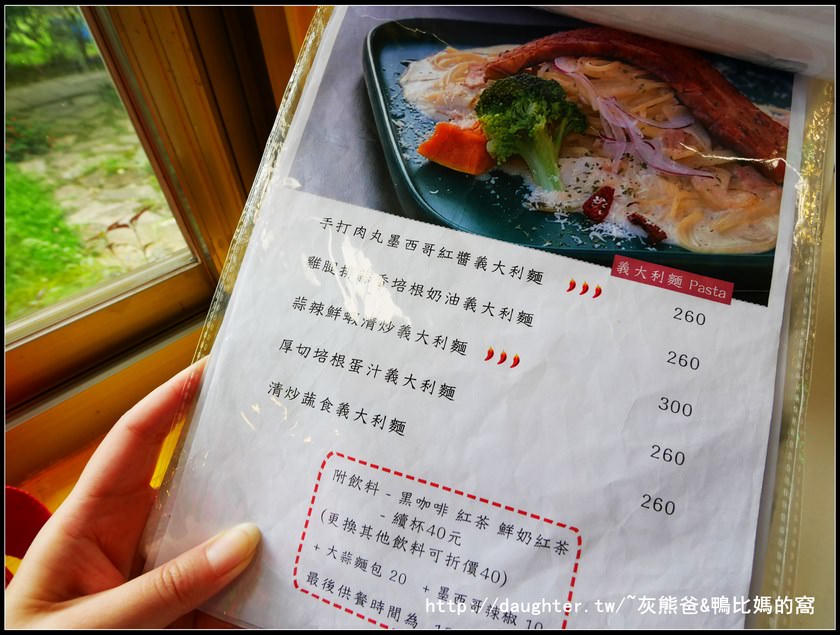 義大利麵 Pasta
手打肉丸墨西哥紅醬義大利麵 260
雞腿排蒜香培根奶油義大利麵 260
蒜辣鮮蝦清炒義大利麵 300
厚切培根蛋汁義大利麵 260
清炒蔬食義大利麵 260
附飲料 - 黑咖啡 紅茶 鮮奶紅茶
- 續杯40元
(更換其他飲料可折價40)
+ 大蒜麵包 20 + 墨西哥辣椒 10
最後供餐時間為
http://daughter.tw/~灰熊爸&鴨比媽的窩